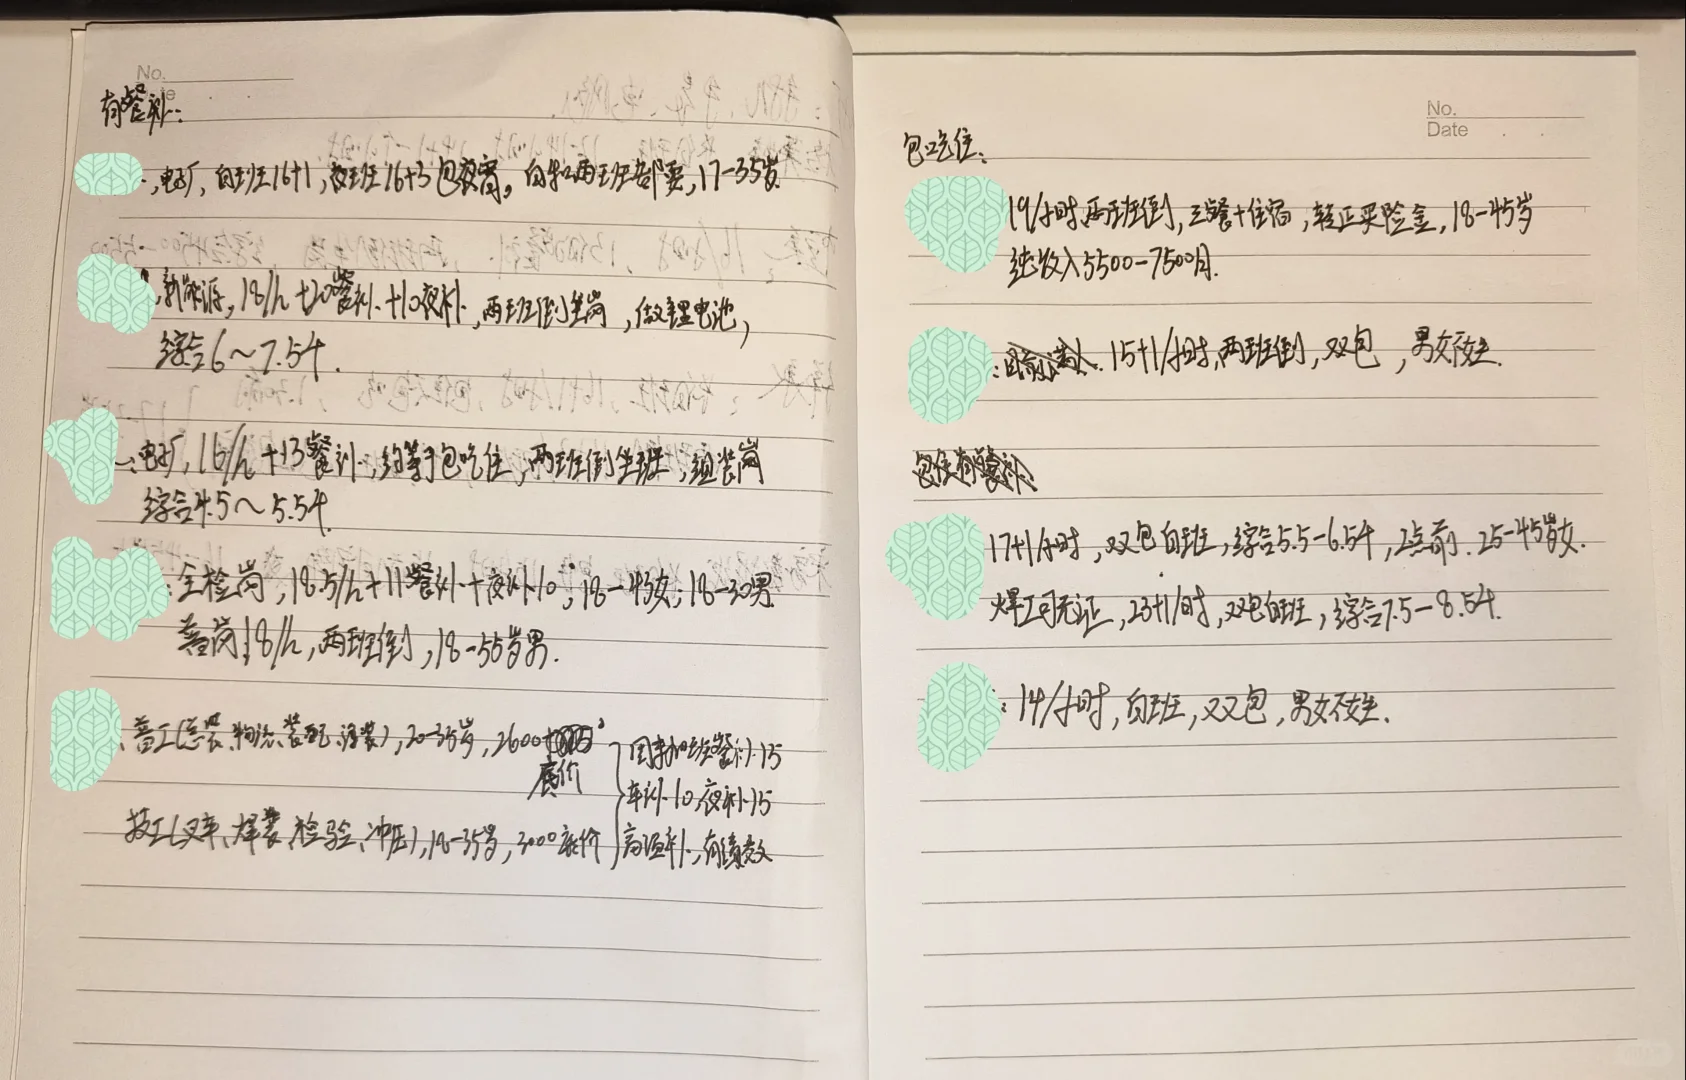 No.
有餐补:
,电子厂,白班16+1,夜班16+3包夜宵。白和两班都要,17-35岁
新能源,18/h+20餐补+10夜补,两班倒坐岗,做锂电池,
综合6~7.5千.
电子厂,16/h+13餐补,约等于包吃住,两班倒坐班,组装岗
综合4.5~5.5千.
:全检岗,18.5/h+11餐补+夜补10;18-43女;18-30男.
普岗18/h,两班倒,18-55岁男.
普工(总装、物流、装配、涂装),20-35岁,2600
底价
周末加班餐补15
车补10,夜补15
技工(叉车、焊装、检验、冲压),18-35岁,3000底价
高温补,有绩效
No.
Date
包吃住:
19/小时,两班倒,三餐+住宿,转正买险金,18-45岁
纯收入5500-7500月.
: 15+1/小时,两班倒,双包,男女不姓.
包住有餐补
17+1/小时,双包白班,综合5.5-6.5千,2点前.25-45岁女.
焊工可无证,23+1/时,双包白班,综合7.5-8.5千.
:14/小时,白班,双包,男女不姓.